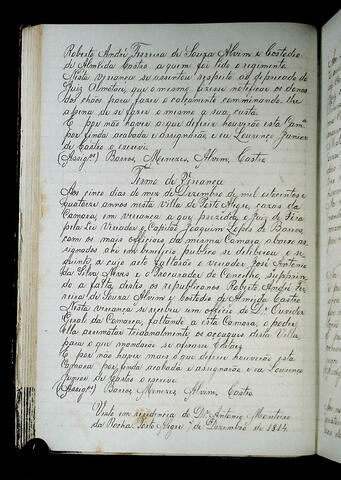 Roberto André Ferreira de Souza Alvim e Custodio
de Almeida Castro a quem foi lido o regimento.
Nesta vereança se assentou respeito as deprecado do
Juiz Almotacé, que o mesmo fizesse notificar os donos
dos chãos para fazer o calçamento, comminando-lhe
a pena de se fazer o mesmo a sua custa.
E por não haver o que deferir houverão esta Camª
por finda acabada e assignarão, e eu Lourenço Junior
de Castro o escrevi.
(Assigos) Barros, Menezes, Alvim, Castro
Termo de Vereança
Aos cinco dias do mez de Dezembro de mil oitocentos e
quatorze annos nesta villa de Porto Alegre, casas da
Camara, em vereança a que prezidio o Juiz de Fóra
pela Lei Vereador o Capitão Joaquim Lopes de Barros,
com os mais officiaes da mesma Camara, abaixo as-
signados ahi em beneficio publico se deliberou o se-
guinte, a cujo acto faltarão o vereador José Antonio
da Silva Neves e o Procurador do Concelho, suprindo
a falta destes os republicanos Roberto André Fer-
reira de Souza Alvim e Custodio de Almeida Castro
Nesta vereança se recebeu um officio do Dr. Ouvidor
Geral da Comarca, faltando a esta Camara, o poder
ella arrematar trienalmente os açougues desta Villa
para o que mandarão se afixar Editaes.
E por não haver mais o que deferir houverão esta
Camara por finda acabada e assignarão, e eu Lourenço
Junior de Castro o escrevi
(Assigos) Barros, Menezes, Alvim, Castro
Visto em residencia do Dr. Antonio Monteiro
da Rocha. Porto Alegre 7 de Dezembro de 1814